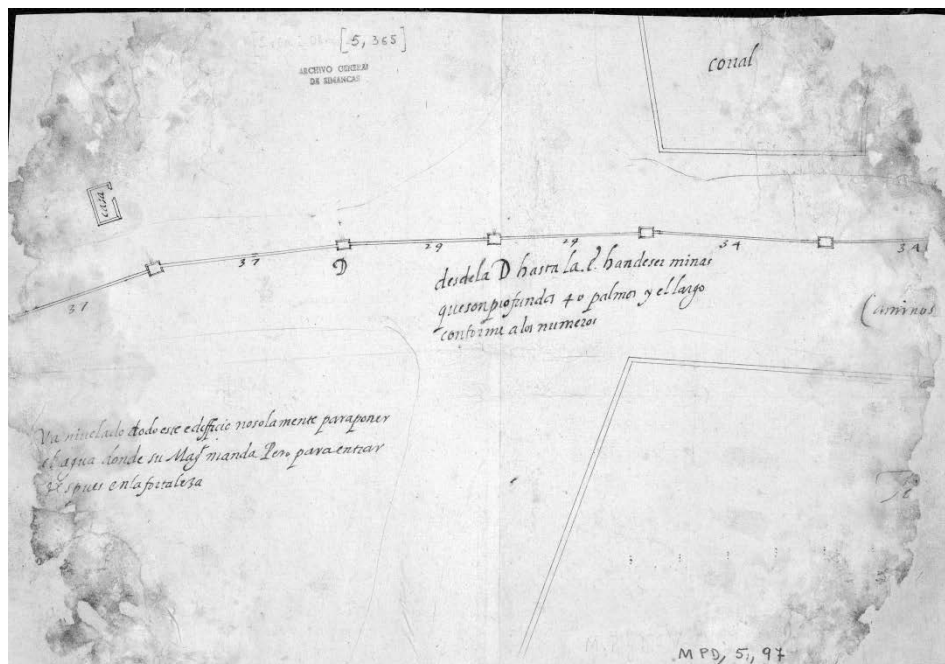 [5, 365]
ARCHIVO GENERAL
DE SIMANCAS
corral
casa
37
37
D
29
29
34
34
desde la D hasta la .l. han de ser minas
que son profundas 40 palmos y el largo
conforme a los numeros
Caminos
Va nivelado todo este edifficio no solamente para poner
el agua donde su Magt manda Pero para entrar
despues en la fortaleza
MPD, 5, 97